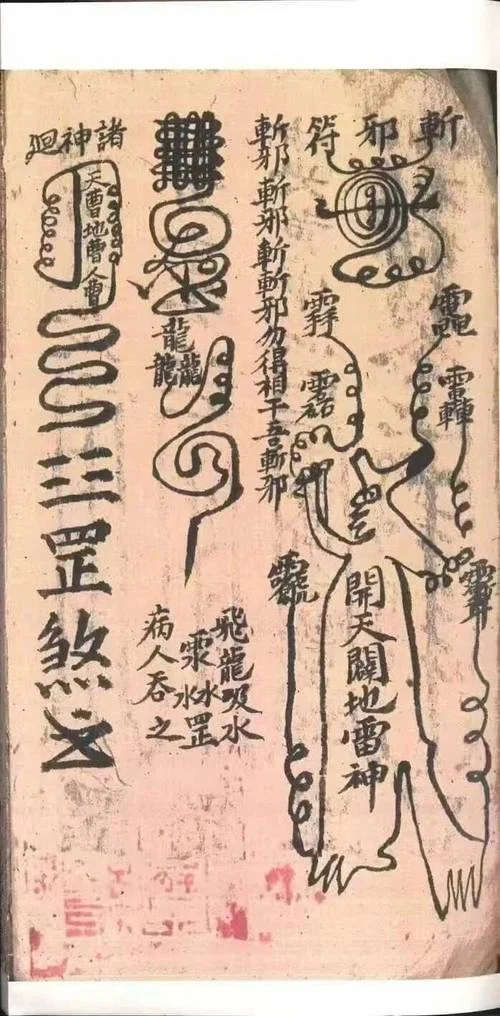 斬邪符
開天闢地雷神
斬邪斬邪斬斬邪勿得相干吾斬邪
龍龍龍
飛龍吸水
水水罡
病人吞之
諸神廻
天曹地曹人曹
三三罡煞